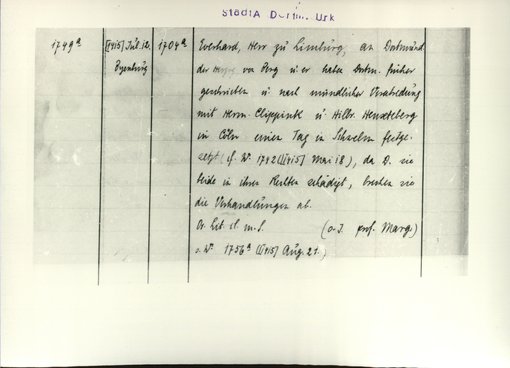 StadtA Dortm. Urk
1749a
[1415] Jul. 12.
1704a
Everhard, Herr zu Limburg, an Dortmund
Byenburg
der von Berg u. er haben Dortm. früher
geschrieben u. nach mündlicher Verabredung
mit Herrn. Clippink u. Hilbr. Henxteberg
in Cöln einen Tag in Schwelm festge-
setzt (cf. Nr. 1742 ([1415] Mai 18), da D. sie
beide in ihren Rechten schädigt, brechen sie
die Verhandlungen ab.
Or. lit. cl. m. S. (o. J. prof. Marg.)
v. Nr. 1756a ([1415] Aug. 21.)